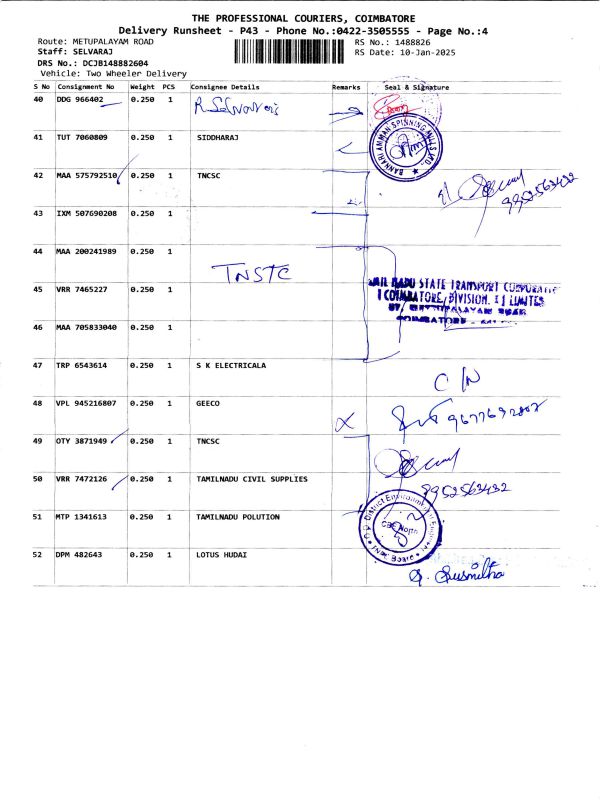 THE PROFESSIONAL COURIERS, COIMBATORE
Delivery Runsheet - P43 - Phone No.:0422-3505555 - Page No.:4
Route: METUPALAYAM ROAD
RS No.: 1488826
Staff: SELVARAJ
RS Date: 10-Jan-2025
DRS No.: DCJB148882604
Vehicle: Two Wheeler Delivery
S No Consignment No Weight PCS Consignee Details Remarks Seal & Signature
40 DDG 966402 0.250 1
41 TUT 7060809 0.250 1 SIDDHARAJ
BANNARI AMMAN SPINNING MILLS
42 MAA 575792510 0.250 1 TNCSC
9952563432
43 IXM 507690208 0.250 1
44 MAA 200241989 0.250 1
TNSTC
45 VRR 7465227 0.250 1
NADU STATE TRANSPORT CORPORATION
COIMBATORE, DIVISION. I] LIMITED
46 MAA 705833040 0.250 1
COIMBATORE
47 TRP 6543614 0.250 1 S K ELECTRICALA
C/N
48 VPL 945216807 0.250 1 GEECO
49 OTY 3871949 0.250 1 TNCSC
50 VRR 7472126 0.250 1 TAMILNADU CIVIL SUPPLIES
9952563432
51 MTP 1341613 0.250 1 TAMILNADU POLUTION
District Environmental Engineer
CBE North
Board
52 DPM 482643 0.250 1 LOTUS HUDAI
G. Susmitha